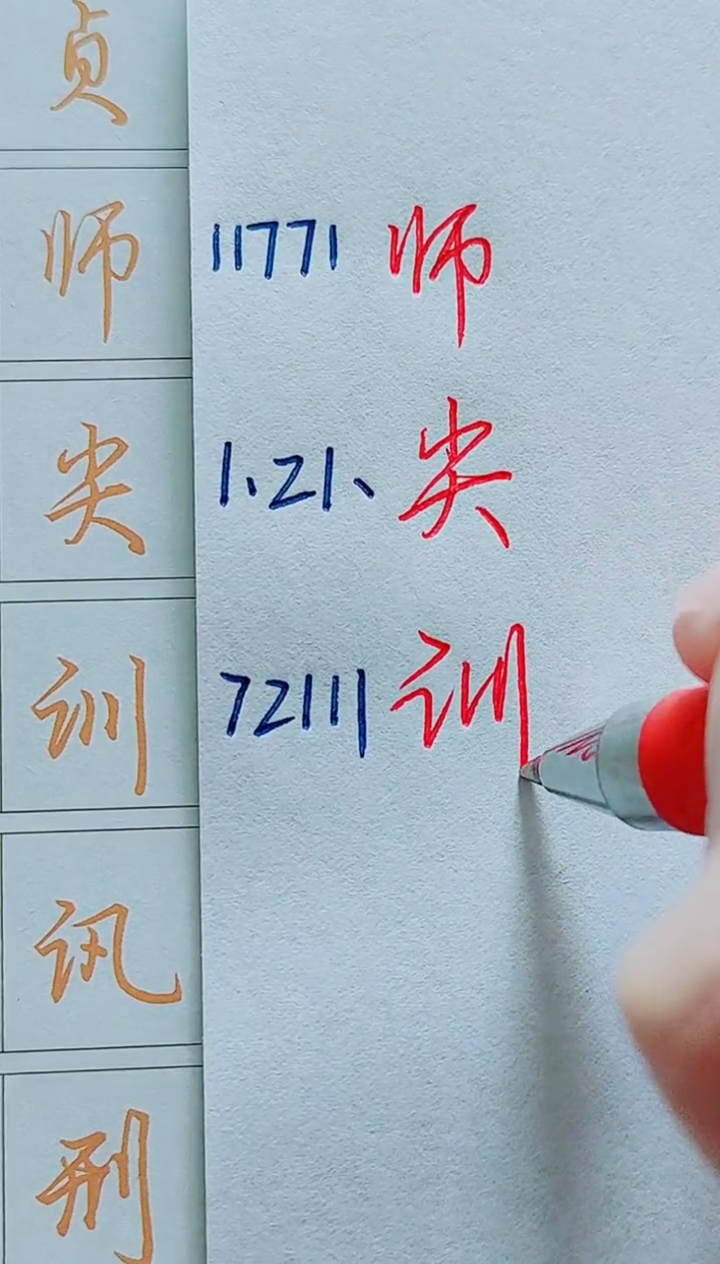 贞
师 11771 师
尖 1、21、 尖
训 72111 训
讯
刑